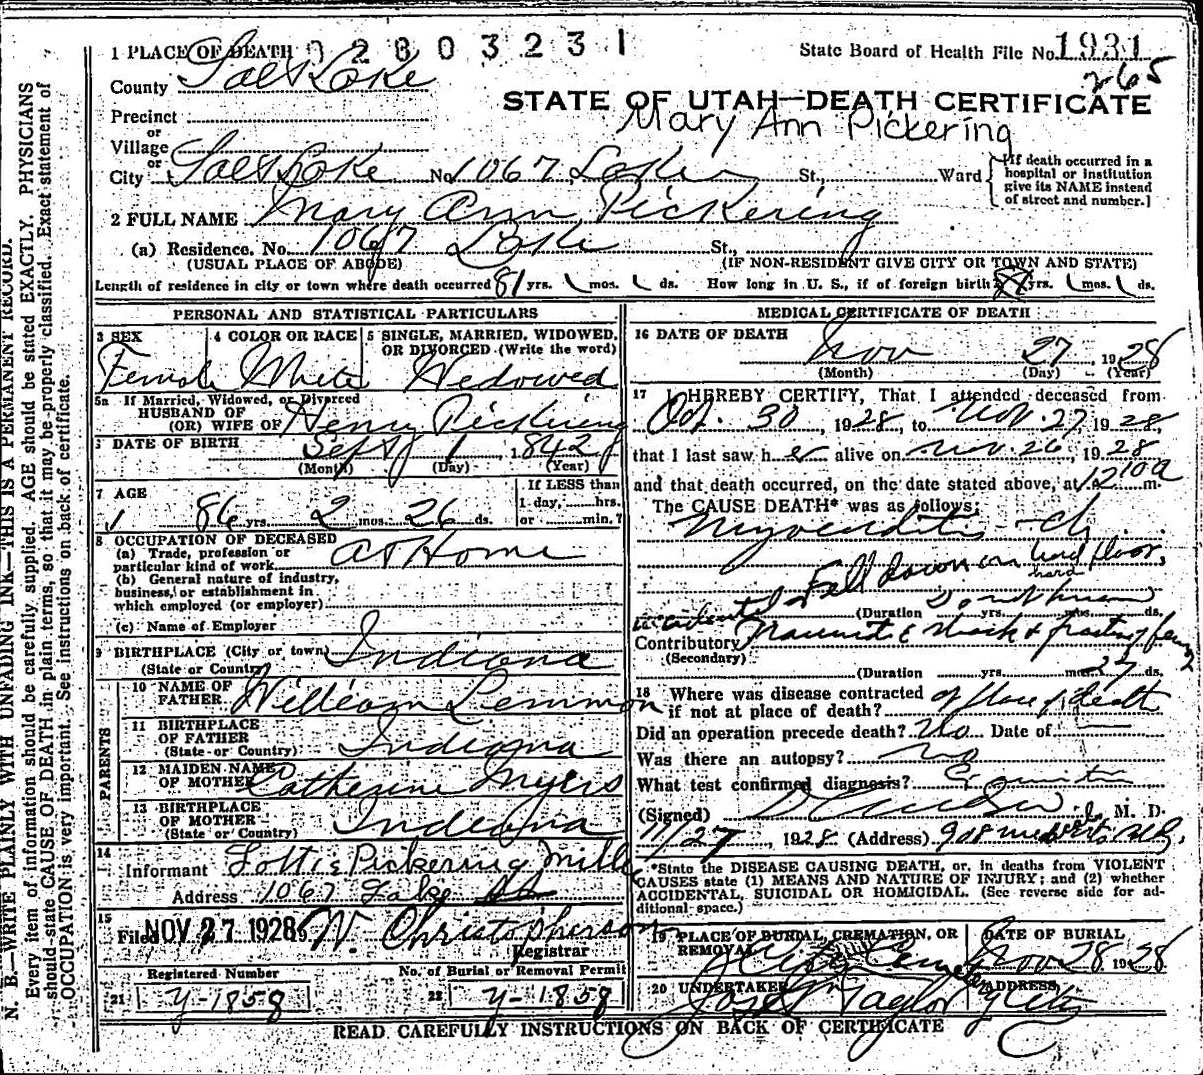 1 PLACE OF DEATH 02803231 State Board of Health File No. 1931
265
County Salt Lake
STATE OF UTAH—DEATH CERTIFICATE
Mary Ann Pickering
Precinct
or
Village
or
City Salt Lake No. 1067 Lake St., Ward
[If death occurred in a hospital or institution give its NAME instead of street and number.]
2 FULL NAME Mary Ann Pickering
(a) Residence. No. 1067 Lake St.,
(USUAL PLACE OF ABODE) (IF NON-RESIDENT GIVE CITY OR TOWN AND STATE)
Length of residence in city or town where death occurred 81 yrs. mos. ds. How long in U. S., if of foreign birth yrs. mos. ds.
PERSONAL AND STATISTICAL PARTICULARS
3 SEX 4 COLOR OR RACE 5 SINGLE, MARRIED, WIDOWED, OR DIVORCED (Write the word)
Female White Widowed
5a If Married, Widowed, or Divorced
HUSBAND OF
(OR) WIFE OF Henry Pickering
DATE OF BIRTH Sept 1 1842
(Month) (Day) (Year)
7 AGE If LESS than
1 day, hrs.
86 yrs. 2 mos. 26 ds. or min.?
8 OCCUPATION OF DECEASED
(a) Trade, profession or
particular kind of work At Home
(b) General nature of industry,
business, or establishment in
which employed (or employer)
(c) Name of Employer
9 BIRTHPLACE (City or town) Indiana
(State or Country)
PARENTS
10 NAME OF FATHER William Lemmon
11 BIRTHPLACE OF FATHER (State or Country) Indiana
12 MAIDEN NAME OF MOTHER Catherine Myers
13 BIRTHPLACE OF MOTHER (State or Country) Indiana
14
Informant Lottie Pickering Mill
Address 1067 Lake St
15
Filed NOV 27 1928 W. Christopherson
Registrar
Registered Number No. of Burial or Removal Permit
21 Y-1858 22 Y-1858
MEDICAL CERTIFICATE OF DEATH
16 DATE OF DEATH
Nov 27 1928
(Month) (Day) (Year)
17 I HEREBY CERTIFY, That I attended deceased from
Oct. 30, 1928, to Nov. 27 1928,
that I last saw her alive on Nov. 26, 1928
and that death occurred, on the date stated above, at 12 10 a m.
The CAUSE DEATH* was as follows:
Myocarditis - Ch.
Fell down on hard floor,
hard
accidental
(Duration Do not know yrs. mos. ds.
Contributory Traumatic shock &
(Secondary)
(Duration yrs. mos. 27 ds.
18 Where was disease contracted
if not at place of death? at place of death
Did an operation precede death? No Date of
Was there an autopsy? No
What test confirmed diagnosis?
(Signed) M. D.
11/27, 1928 (Address) 908
*State the DISEASE CAUSING DEATH, or, in deaths from VIOLENT
CAUSES state (1) MEANS AND NATURE OF INJURY; and (2) whether
ACCIDENTAL, SUICIDAL OR HOMICIDAL. (See reverse side for ad-
ditional space.)
19 PLACE OF BURIAL, CREMATION, OR REMOVAL DATE OF BURIAL
City Cemetery Nov 28 1928
20 UNDERTAKER ADDRESS
Jos. Taylor City
READ CAREFULLY INSTRUCTIONS ON BACK OF CERTIFICATE
N. B.—WRITE PLAINLY WITH UNFADING INK—THIS IS A PERMANENT RECORD.
Every item of information should be carefully supplied. AGE should be stated EXACTLY. PHYSICIANS
should state CAUSE OF DEATH in plain terms, so that it may be properly classified. Exact statement of
OCCUPATION is very important. See instructions on back of certificate.